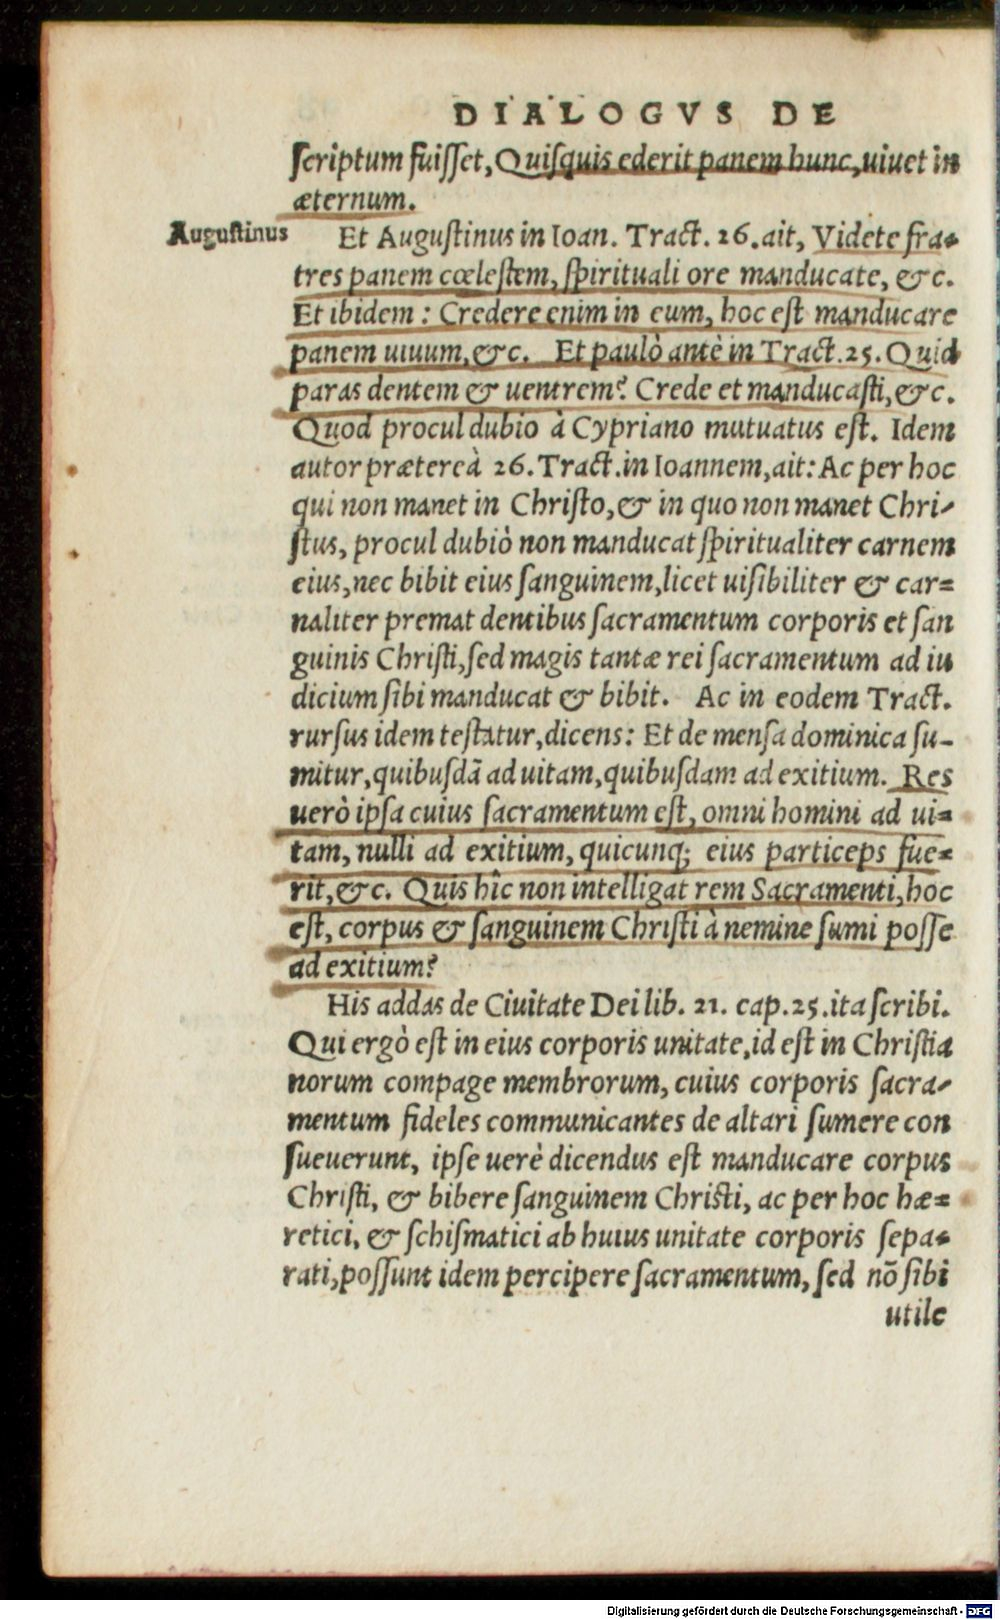 DIALOGVS DE
ſcriptum fuiſſet, Quiſquis ederit panem hunc, uiuet in
æternum.
Auguſtinus
Et Auguſtinus in Ioan. Tract. 26. ait, Videte fra-
tres panem cœleſtem, ſpirituali ore manducate, &c.
Et ibidem: Credere enim in eum, hoc eſt manducare
panem uiuum, &c. Et paulò antè in Tract. 25. Quid
paras dentem & uentrem? Crede et manducaſti, &c.
Quod procul dubio à Cypriano mutuatus eſt. Idem
autor prætereà 26. Tract. in Ioannem, ait: Ac per hoc
qui non manet in Chriſto, & in quo non manet Chri-
ſtus, procul dubiò non manducat ſpiritualiter carnem
eius, nec bibit eius ſanguinem, licet uiſibiliter & car=
naliter premat dentibus ſacramentum corporis et ſan
guinis Chriſti, ſed magis tantæ rei ſacramentum ad iu
dicium ſibi manducat & bibit. Ac in eodem Tract.
rurſus idem teſtatur, dicens: Et de menſa dominica ſu-
mitur, quibuſdã ad uitam, quibuſdam ad exitium. Res
uerò ipſa cuius ſacramentum eſt, omni homini ad ui=
tam, nulli ad exitium, quicunq; eius particeps fue=
rit, &c. Quis hîc non intelligat rem Sacramenti, hoc
eſt, corpus & ſanguinem Chriſti à nemine ſumi poſſe
ad exitium?
His addas de Ciuitate Dei lib. 21. cap. 25. ita ſcribi.
Qui ergò eſt in eius corporis unitate, id eſt in Chriſtia
norum compage membrorum, cuius corporis ſacra-
mentum fideles communicantes de altari ſumere con
ſueuerunt, ipſe uerè dicendus eſt manducare corpus
Chriſti, & bibere ſanguinem Chriſti, ac per hoc hæ=
retici, & ſchiſmatici ab huius unitate corporis ſepa-
rati, poſſunt idem percipere ſacramentum, ſed nõ ſibi
utile
Digitalisierung gefördert durch die Deutsche Forschungsgemeinschaft - DFG